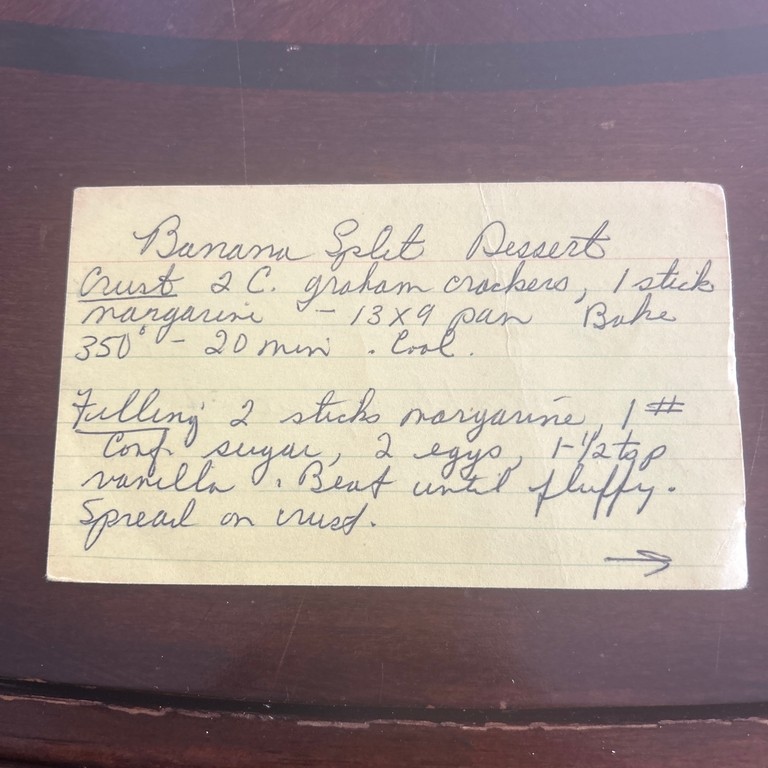 Banana Split Dessert
Crust 2 C. graham crackers, 1 stick
margarine - 13x9 pan Bake
350° - 20 min . Cool.
Filling 2 sticks margarine, 1 #
Conf. sugar, 2 eggs, 1-1/2 tsp
vanilla . Beat until fluffy.
Spread on crust.
→